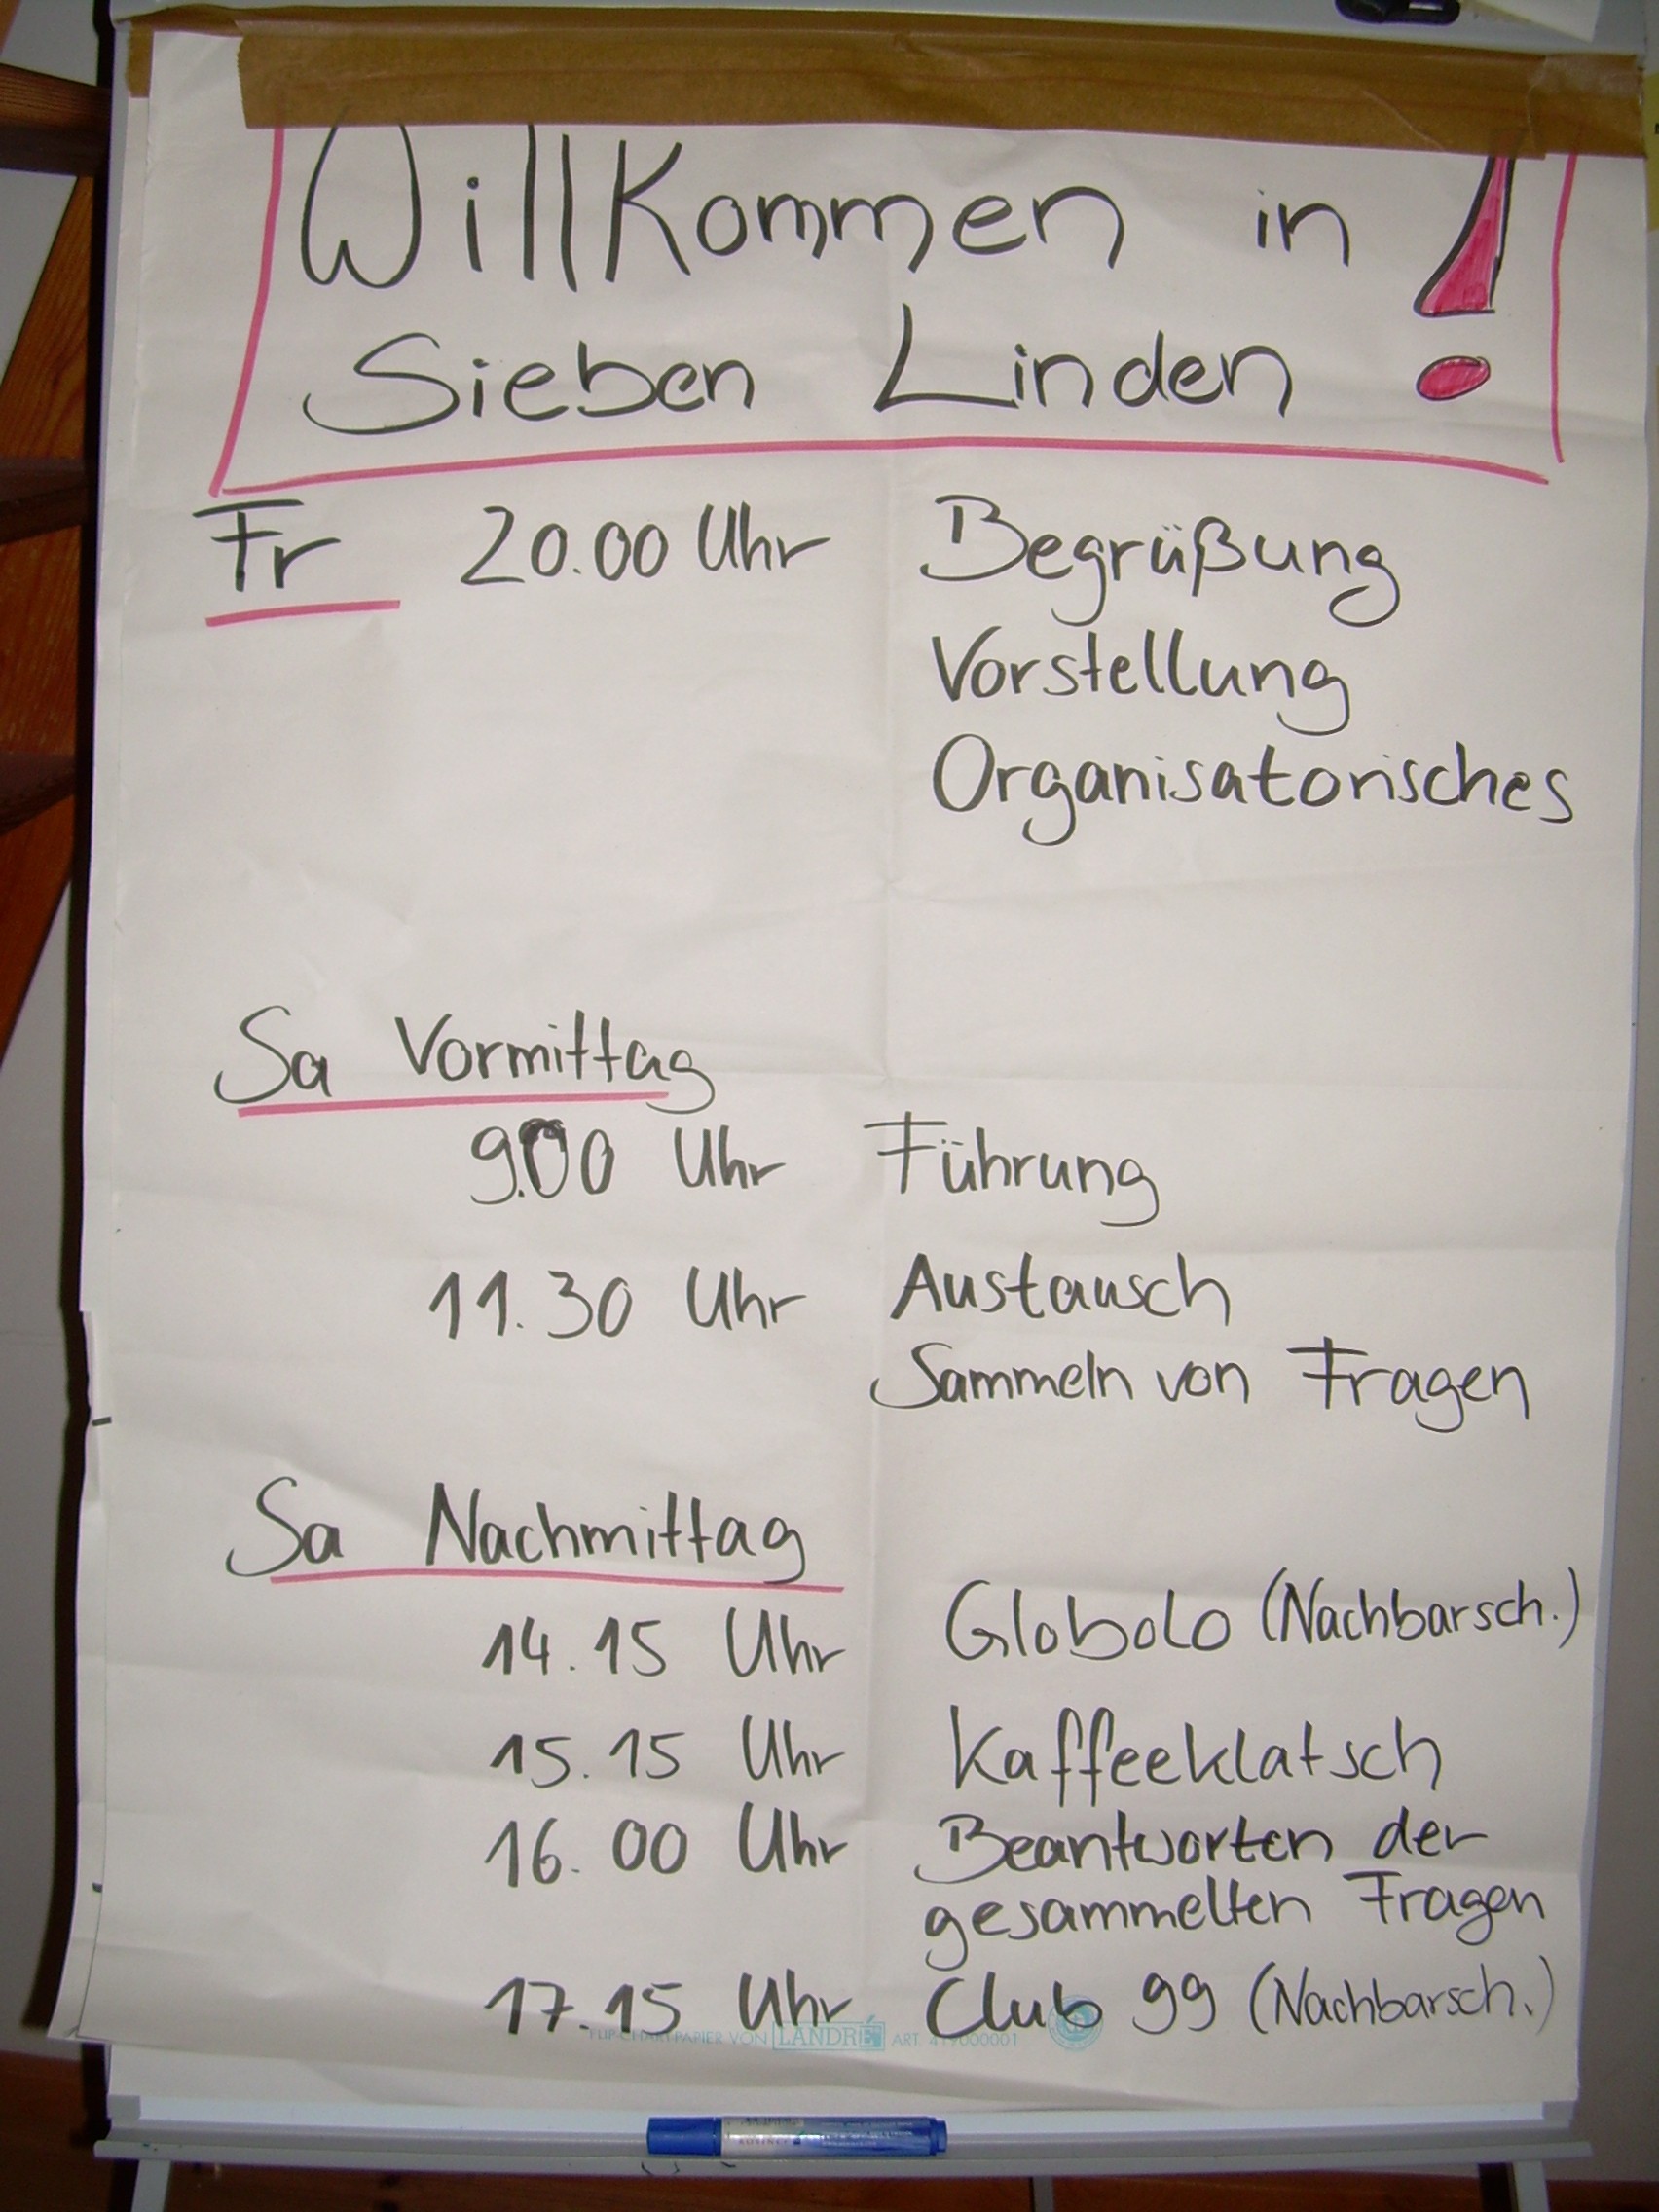 Willkommen in
Sieben Linden !
Fr 20.00 Uhr Begrüßung
Vorstellung
Organisatorisches
Sa Vormittag
9.00 Uhr Führung
11.30 Uhr Austausch
Sammeln von Fragen
Sa Nachmittag
14.15 Uhr Globolo (Nachbarsch.)
15.15 Uhr Kaffeeklatsch
16.00 Uhr Beantworten der
gesammelten Fragen
17.15 Uhr Club 99 (Nachbarsch.)
FLIP-CHART-PAPIER VON LANDRÉ ART. 419000001